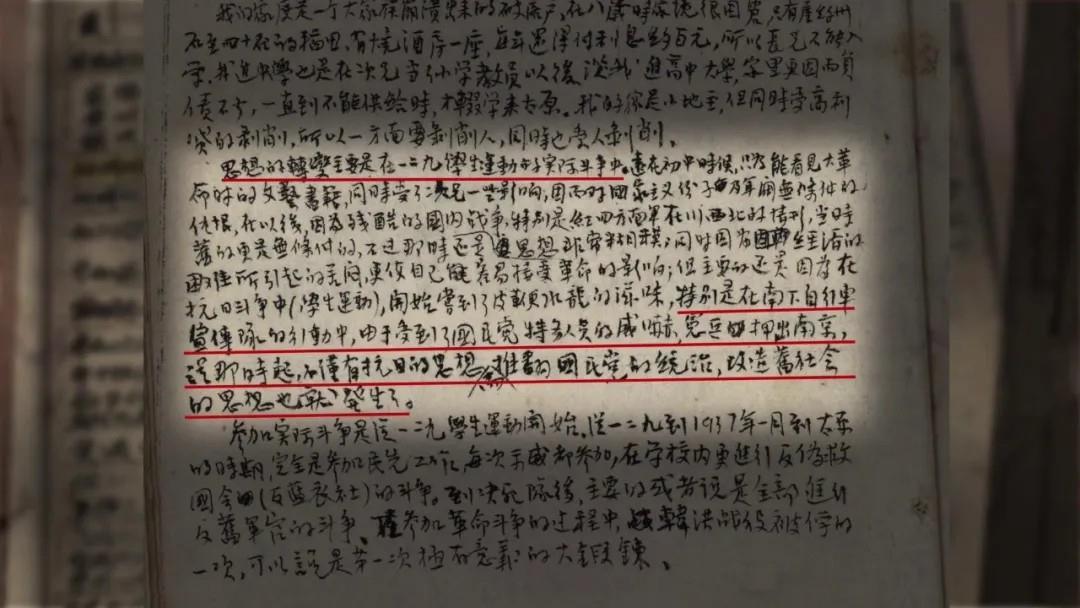 我的家庭是一个大家族崩溃出来的破落户,在八岁时家境很困窘,只有座
在五四十石的稻田,有烧酒房一座,每年还得付利息约百元,所以长兄不能入
学,我进中学也是在次兄当小学教员以后,谈我进高中大学,家里更因而负
债不少,一直到不能供给时,才辍学来太原。我的家是小地主,但同时受高利
贷的剥削,所以一方面要剥削人,同时也受人剥削。
思想的轉變主要是在一二九學生運動的实际斗争中。遠在初中時候,只能看見大革
命时的文藝書籍,同時受二兄一些影响,因而对國家主义份子
仇恨,在以後,因為残酷的國内战争,特别是紅四方面軍在川西北的情形,当时
舊的更是無條件的,不过那時还是思想非常糢糊;同时因为經濟的
困难所引起的苦闷,更使自己能容易接受革命的影响;但主要的还是因為在
抗日斗争中(學生運動),開始嘗到了皮鞭水龍的滋味,特别是在南下自行車
宣傳隊的行動中,由于受到了國民党特务人员的威嚇,憲兵押出南京,
從那時起,不僅有抗日的思想,推翻國民党的統治,改造舊社会
的思想也就發生了。
参加实际斗争是從一二九學生運動開始,從一二九到1937年一月到太原
的時期,完全是参加民先工作,每次示威都参加,在学校内更進行反偽救
國会(反藍衣社)的斗争。到决死隊後,主要的或者说是全部進行
反舊軍官的斗争、参加革命斗争的过程中,韓洪战役被俘的
一次,可以說是第一次極有意義的大鍛鍊、